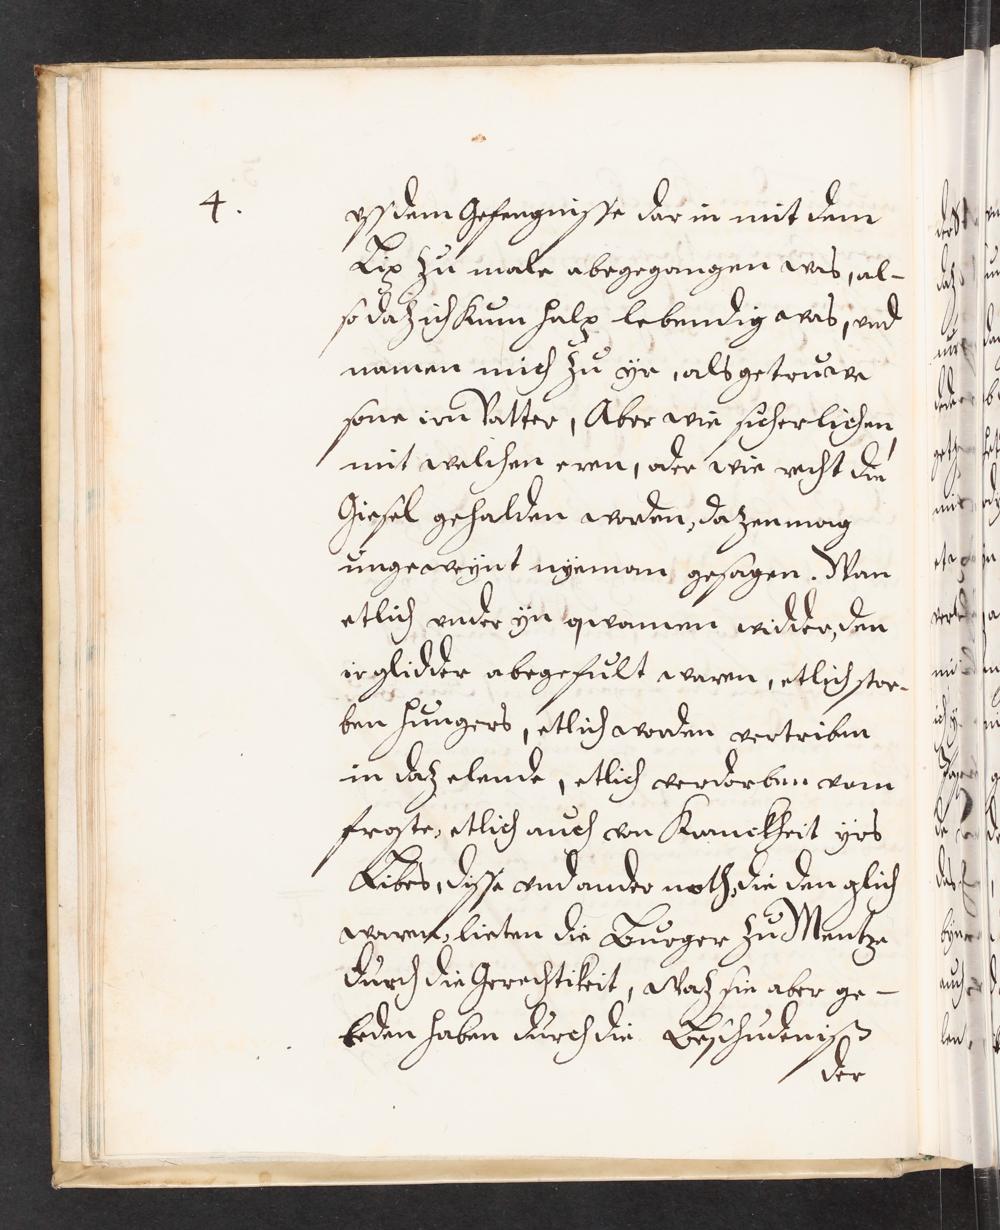 4.
vss dem Gefengnisse dar in mit dem
Lip zu male abegegangen was, al-
so daz ich kum halp lebendig was, und
namen mich zu yr, als getruwe
sone irn Vatter, Aber wie sicherlichen,
mit welchen eren, oder wie recht die
Giesel gehalden worden, daz enmag
ungeweynt nyeman gesagen. Wan
etlich under yn qwamen widder, den
ir glidder abegefult waren, etlich stor-
ben hungers, etlich worden vertriben
in daz elende, etlich verdorben vom
froste, etlich auch von Kranckheit yrs
Libes, disse und ander noth, die den glich
waren, lieten die Burger zu Mentze
durch die Gerechtikeit, Waz sie aber ge-
leden haben durch die Beschudeniß
der